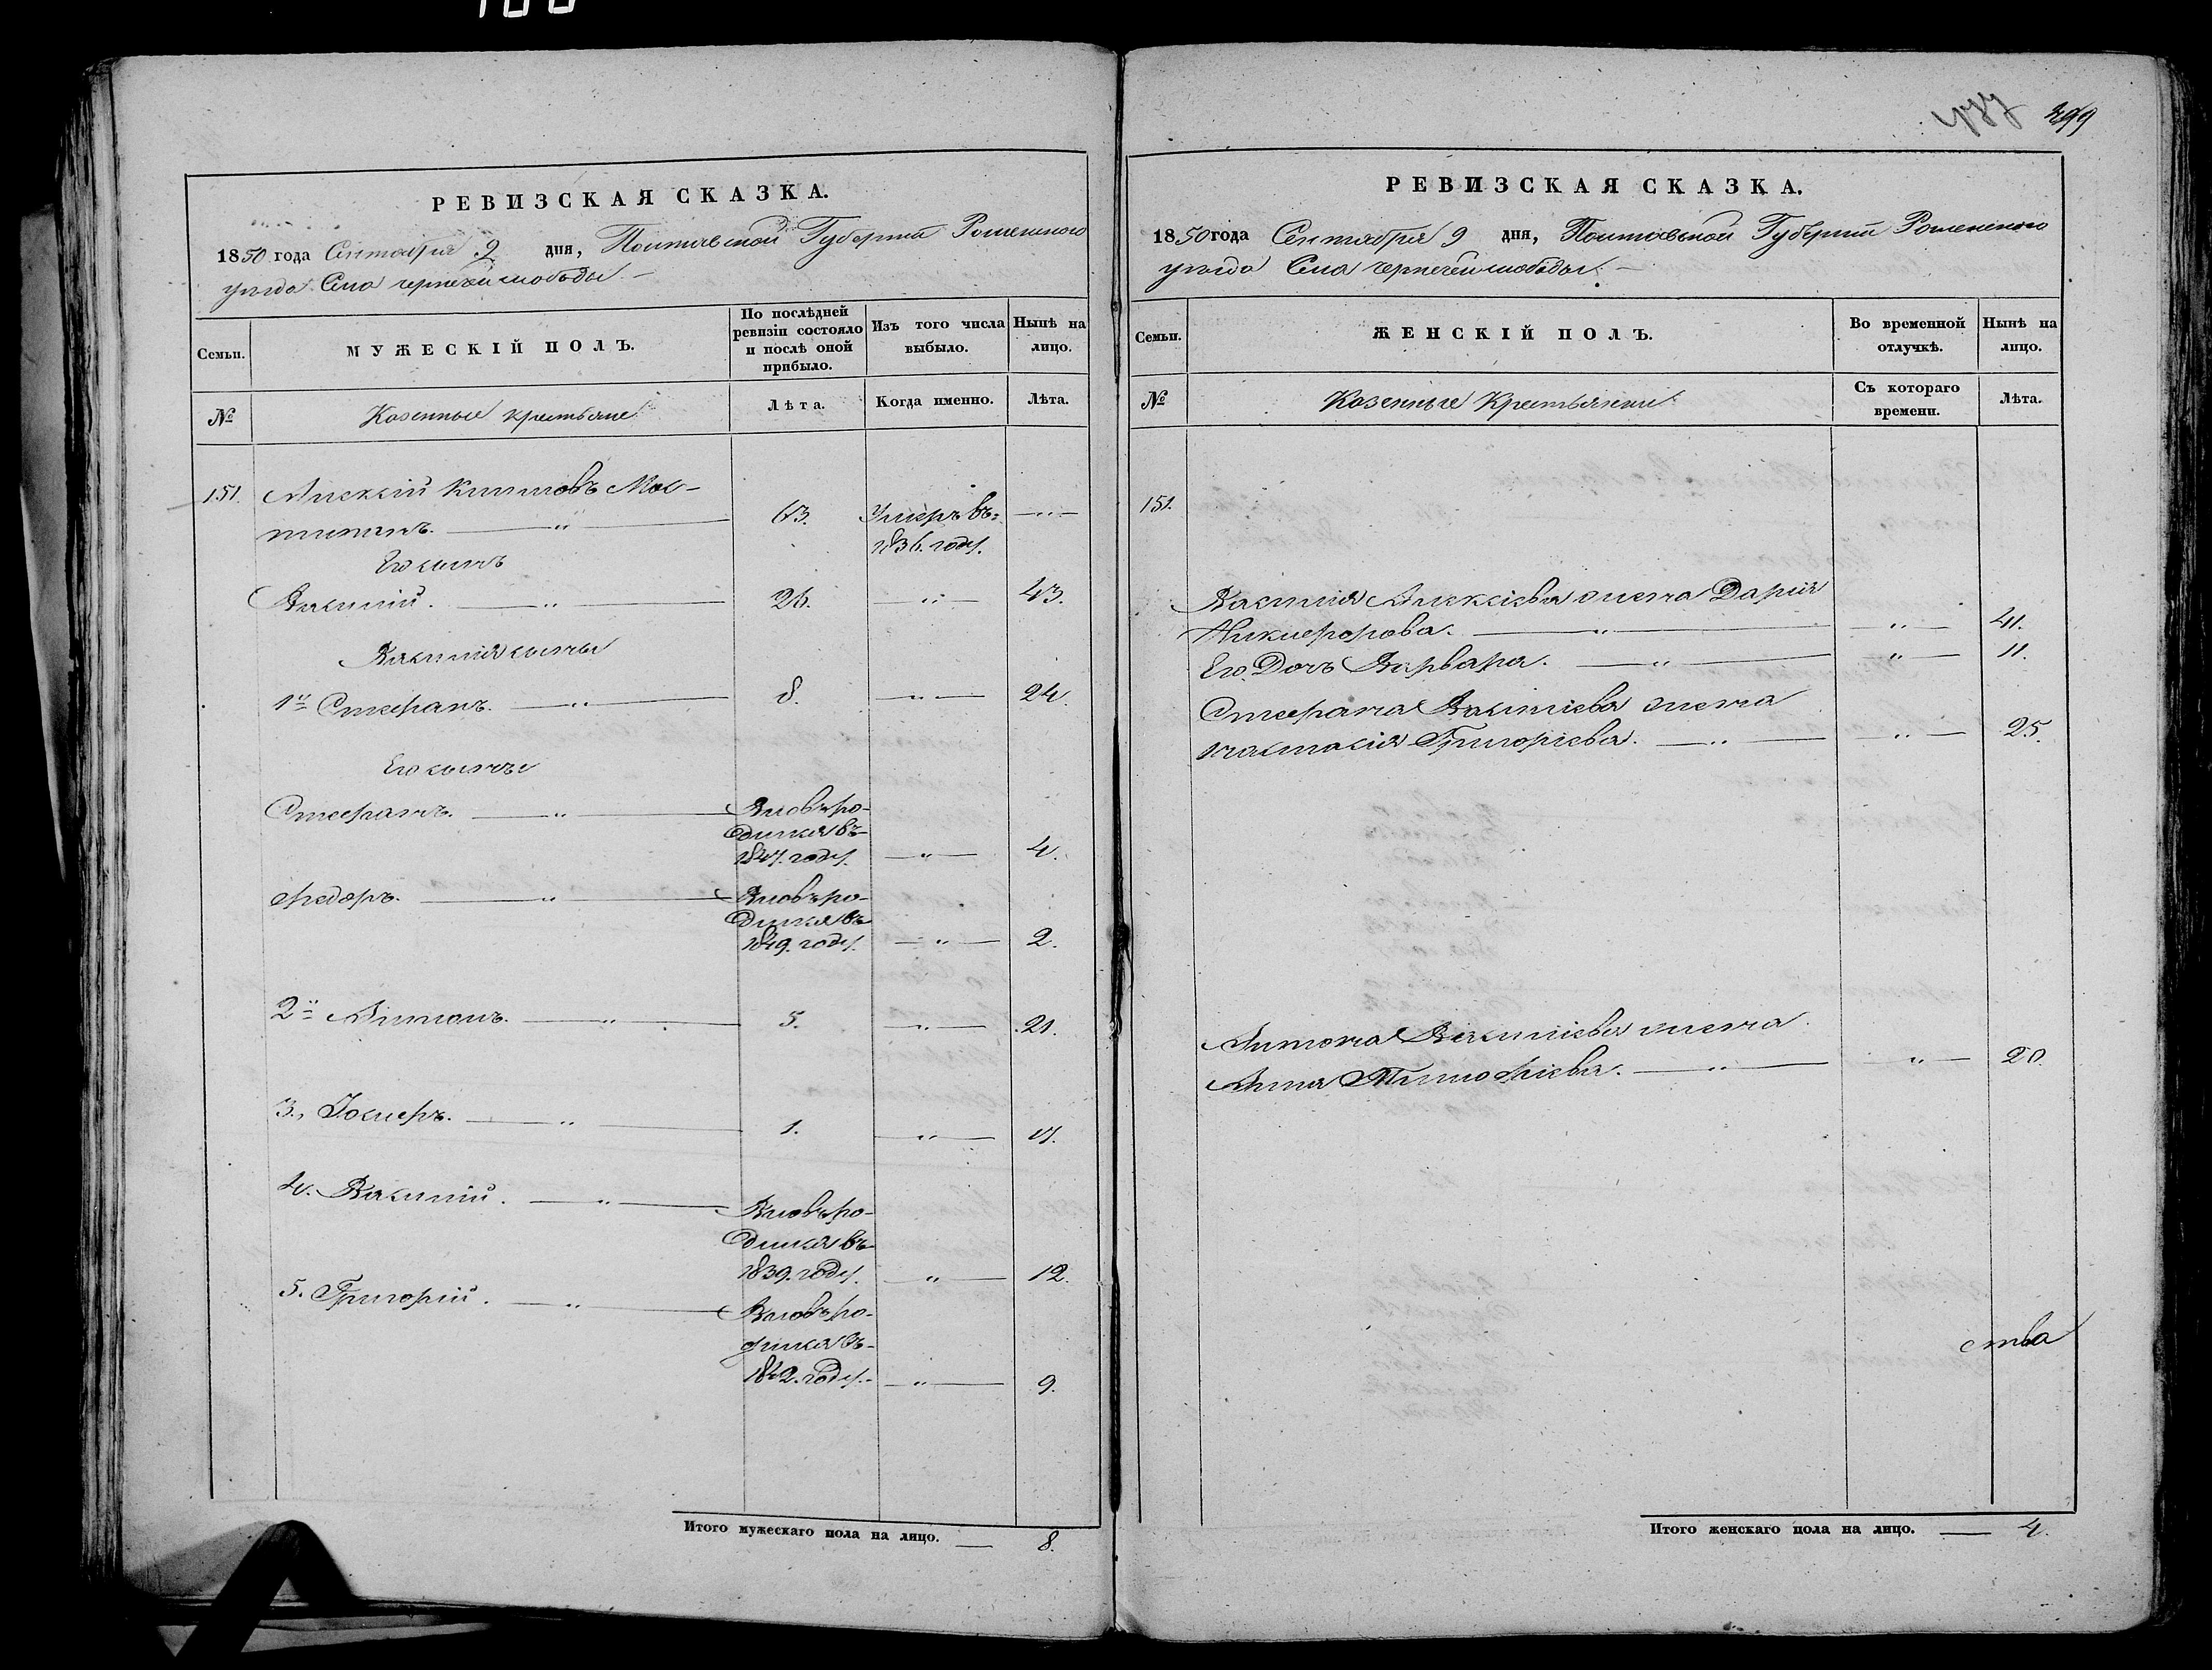 РЕВИЗСКАЯ СКАЗКА.
1850 года Сентября 9 дня, Полтавской Губернии Роменского
уезда Села черпечеи слободы
Семьи.
МУЖЕСКІЙ ПОЛЪ.
По послѣдней ревизіи состояло и послѣ оной прибыло.
Изъ того числа выбыло.
Нынѣ на лицо.
№
Казенные крестьяне
Лѣта.
Когда именно.
Лѣта.
151. Алексѣй Климовъ
63. Умеръ въ
1836. году.
Его сынъ
Василій. 26. 43.
Василія сыны
1й Стефанъ. 8. 24.
Его сыны
Стефанъ. Вновь ро-
дился въ
1847. году. 4.
Федоръ. Вновь ро-
дился въ
1849. году. 2.
2й Антонъ. 5. 21.
3. Іосифъ. 1. 17.
4. Василій. Вновь ро-
дился въ
1839. году. 12.
5. Григорій. Вновь ро-
дился въ
1842. году. 9.
Итого мужескаго пола на лицо. 8.
399
РЕВИЗСКАЯ СКАЗКА.
1850 года Сентября 9 дня, Полтавской Губерніи Роменского
уезда Села черпечеи слободы.
Семьи.
ЖЕНСКІЙ ПОЛЪ.
Во временной отлучкѣ.
Нынѣ на лицо.
№
Казенные Крестьянки
Съ котораго времени.
Лѣта.
151.
Василія Алексѣева жена Дарія
Никифорова. 41.
Его Дочь Варвара. 11.
Стефана Василіева жена
Настасія Григоріева. 25.
Антона Василіева жена
Анна Тимофіева. 20.
ства
Итого женскаго пола на лицо. 4.